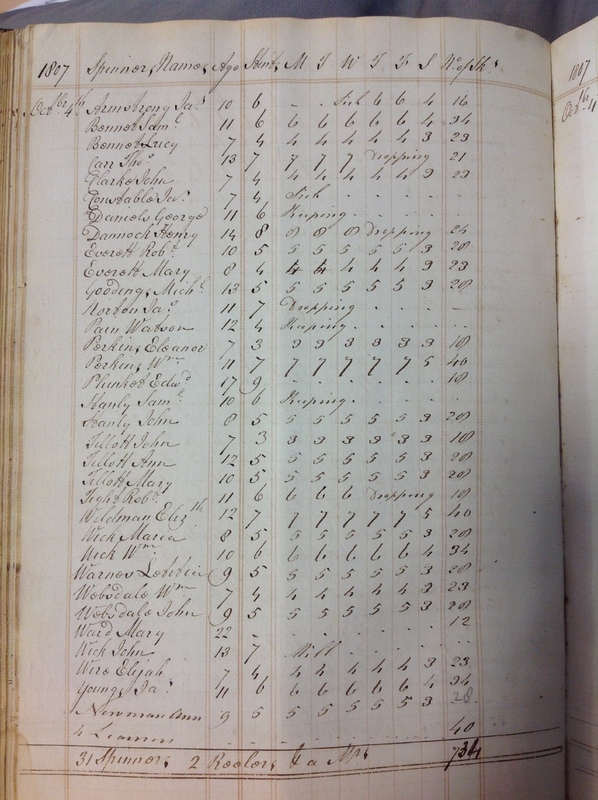 1807 Spinners Names Age Stint M T W T F S No of Sks
Octbr 4th Armstrong Jas 10 6 - . Sick 6 6 4 16
Bennet Saml 11 6 6 6 6 6 6 4 34
Bennet Lucy 7 4 4 4 4 4 4 3 23
Carr Thos 13 7 7 7 7 Dropping 21
Clarke John 7 4 4 4 4 4 4 3 23
Constable Jas 7 4 Sick . . . . .
Daniels George 11 6 Keeping . . . .
Dannock Henry 14 8 8 8 8 Dropping 24
Everett Robt 10 5 5 5 5 5 5 3 28
Everett Mary 8 4 4 4 4 4 4 3 23
Goodings Michl 13 5 5 5 5 5 5 3 28
Norton Jas 11 7 Dropping . . . .
Pain Watson 12 4 Keeping . . . .
Perkins Eleanor 7 3 3 3 3 3 3 3 18
Perkins Wm 11 7 7 7 7 7 7 5 40
Plunket Edwd 17 9 . . . . . . 18
Stanly Saml 10 6 Keeping . . . .
Stanly John 8 5 5 5 5 5 5 3 28
Tillott John 7 3 3 3 3 3 3 3 18
Tillott Ann 12 5 5 5 5 5 5 3 28
Tillott Mary 10 5 5 5 5 5 5 3 28
Tight Robt 11 6 6 6 6 Dropping 18
Weldman Elizth 12 7 7 7 7 7 7 5 40
Wick Maria 8 5 5 5 5 5 5 3 28
Wick Wm 10 6 6 6 6 6 6 4 34
Warnes Letitia 9 5 5 5 5 5 5 3 28
Websdale Wm 7 4 4 4 4 4 4 3 23
Websdale John 9 5 5 5 5 5 5 3 28
Ward Mary 22 - . . . . . . 12
Wick John 13 7 Mill . . . . .
Wire Elijah 7 4 4 4 4 4 4 3 23
Youngs Jas 11 6 6 6 6 6 6 4 34
Newman Ann 9 5 5 5 5 5 5 3 28
4 Learners . . . . . . 40
31 Spinners 2 Reelers & a Mrs 734
1807
Octbr 11